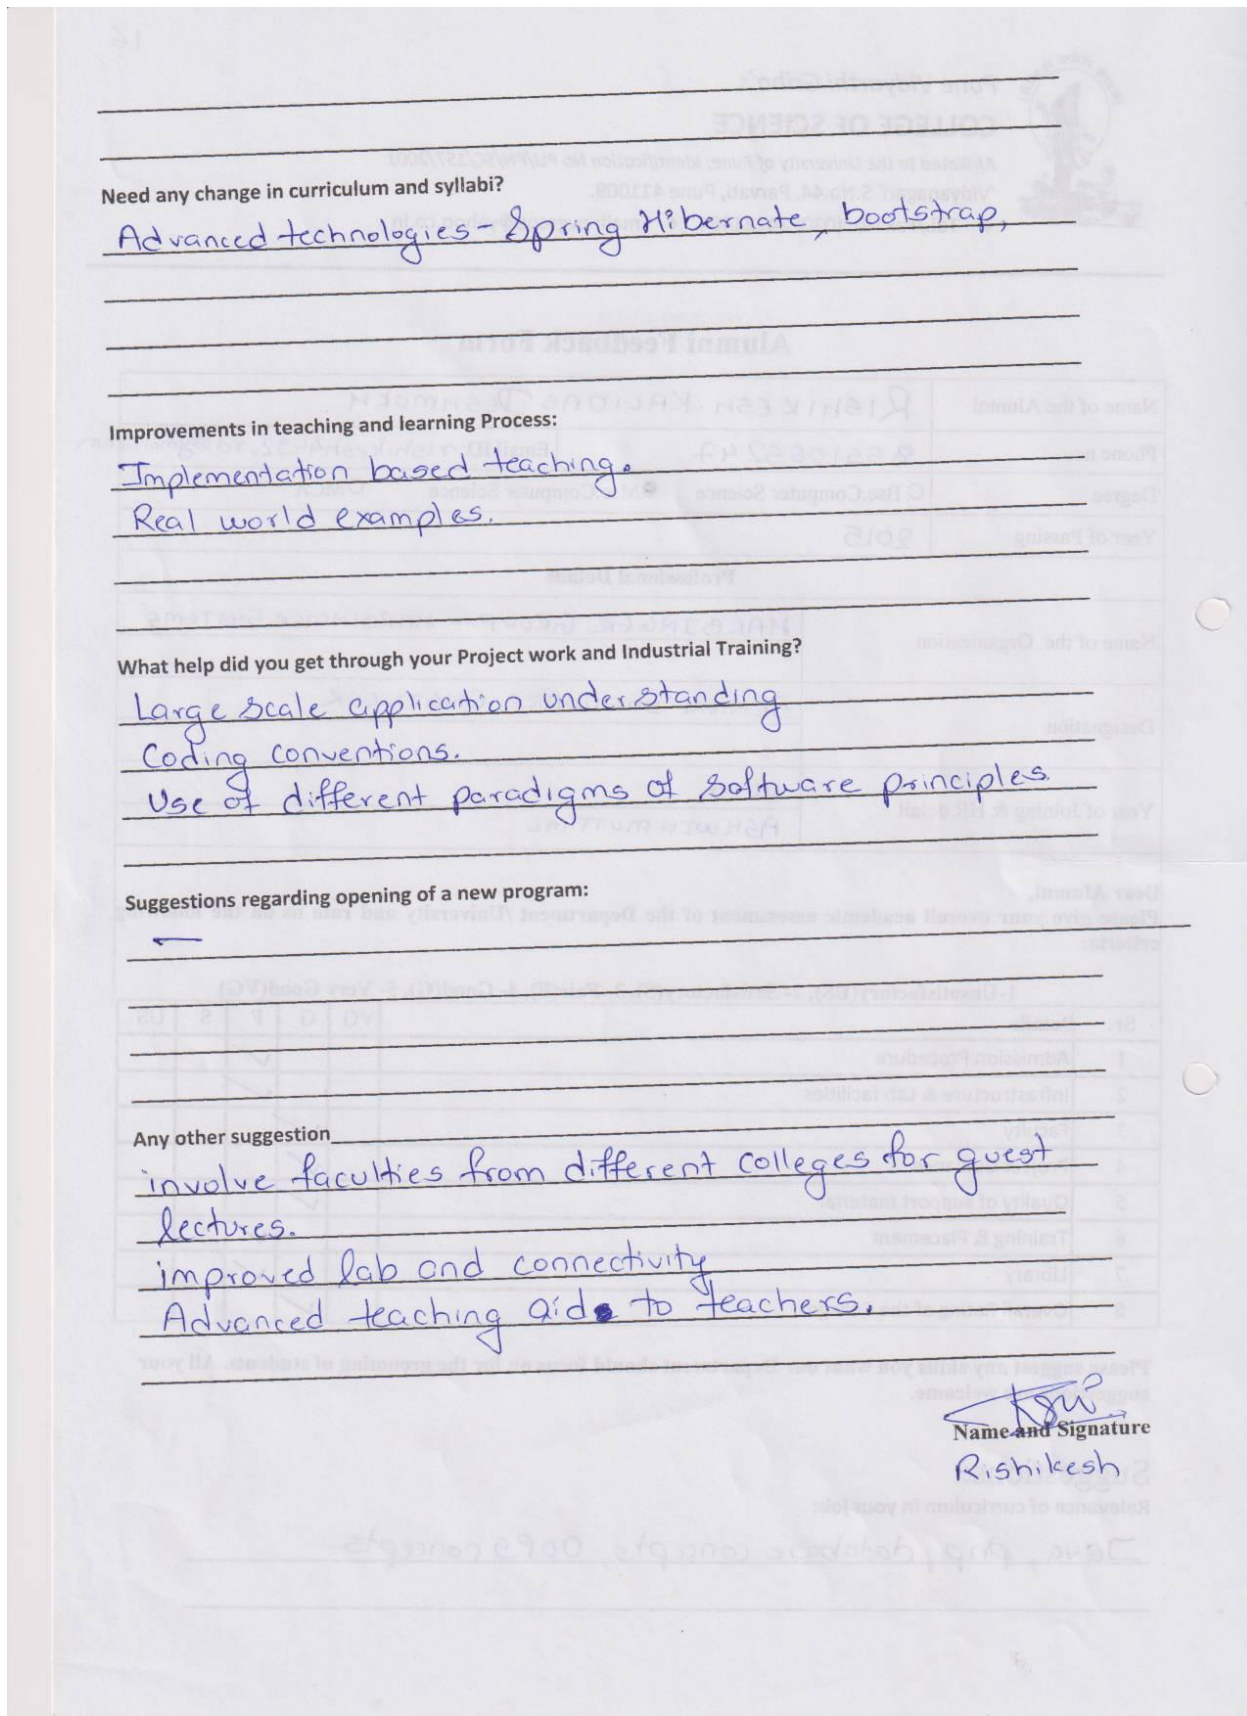 Need any change in curriculum and syllabi?
Advanced technologies - Spring Hibernate, bootstrap,
Improvements in teaching and learning Process:
Implementation based teaching.
Real world examples.
What help did you get through your Project work and Industrial Training?
Large scale application understanding
Coding conventions.
Use of different paradigms of software principles
Suggestions regarding opening of a new program:
—
Any other suggestion
involve faculties from different colleges for guest
lectures.
improved lab and connectivity
Advanced teaching aids to teachers.
Name and Signature
Rishikesh